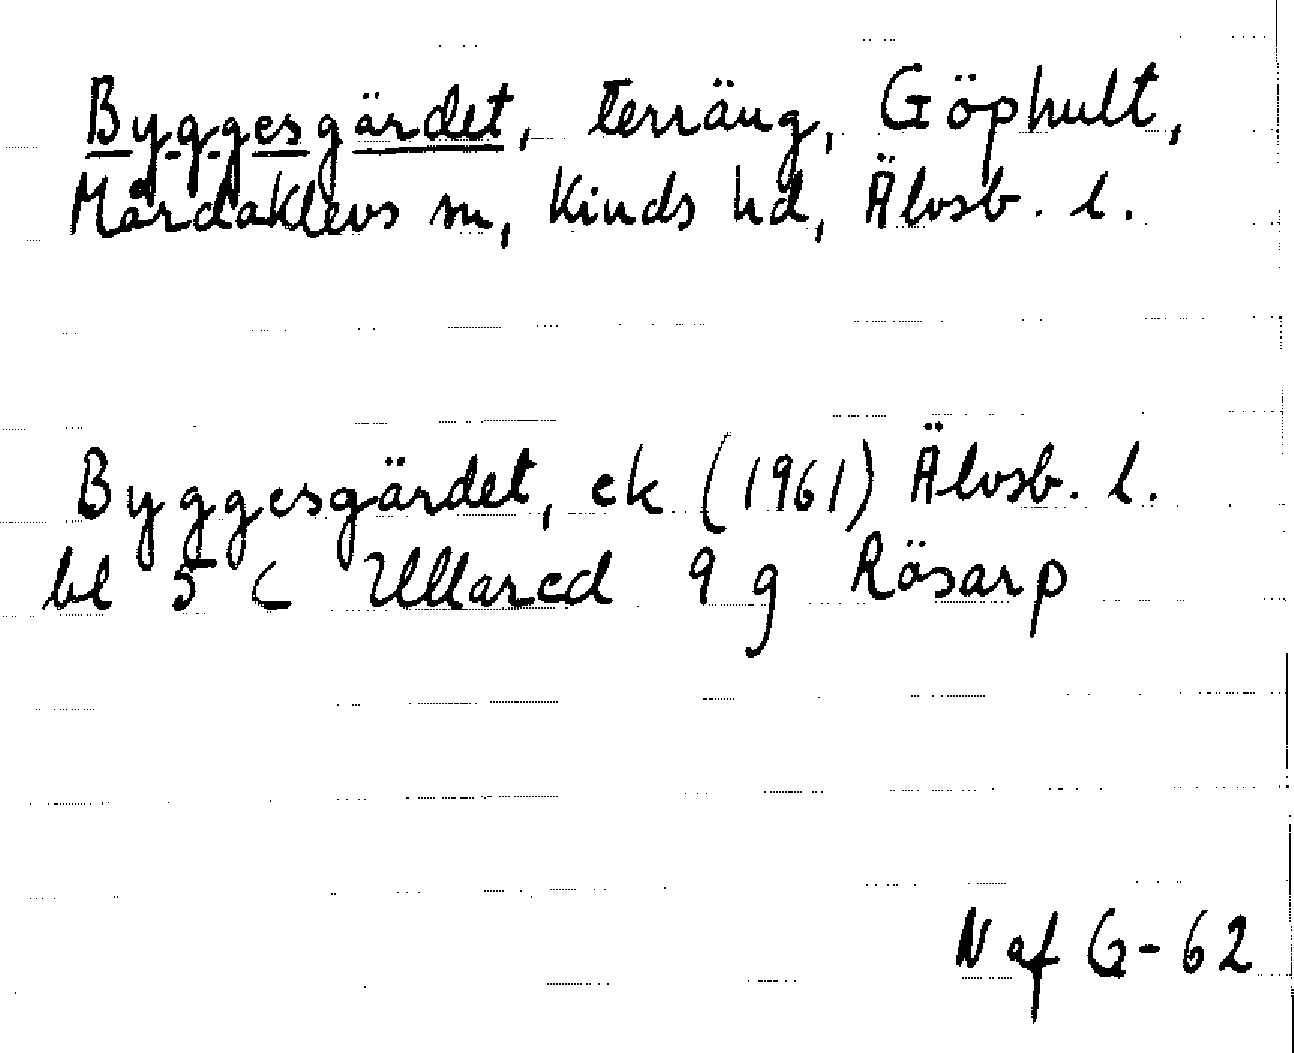 Byggesgärdet, terräng, Göphult,
Mårdaklevs sn, Kinds hd, Älvsb. l.
Byggesgärdet, ek (1961) Älvsb. l.
bl 5 C Ullared 9 g Råsarp
N af G-62